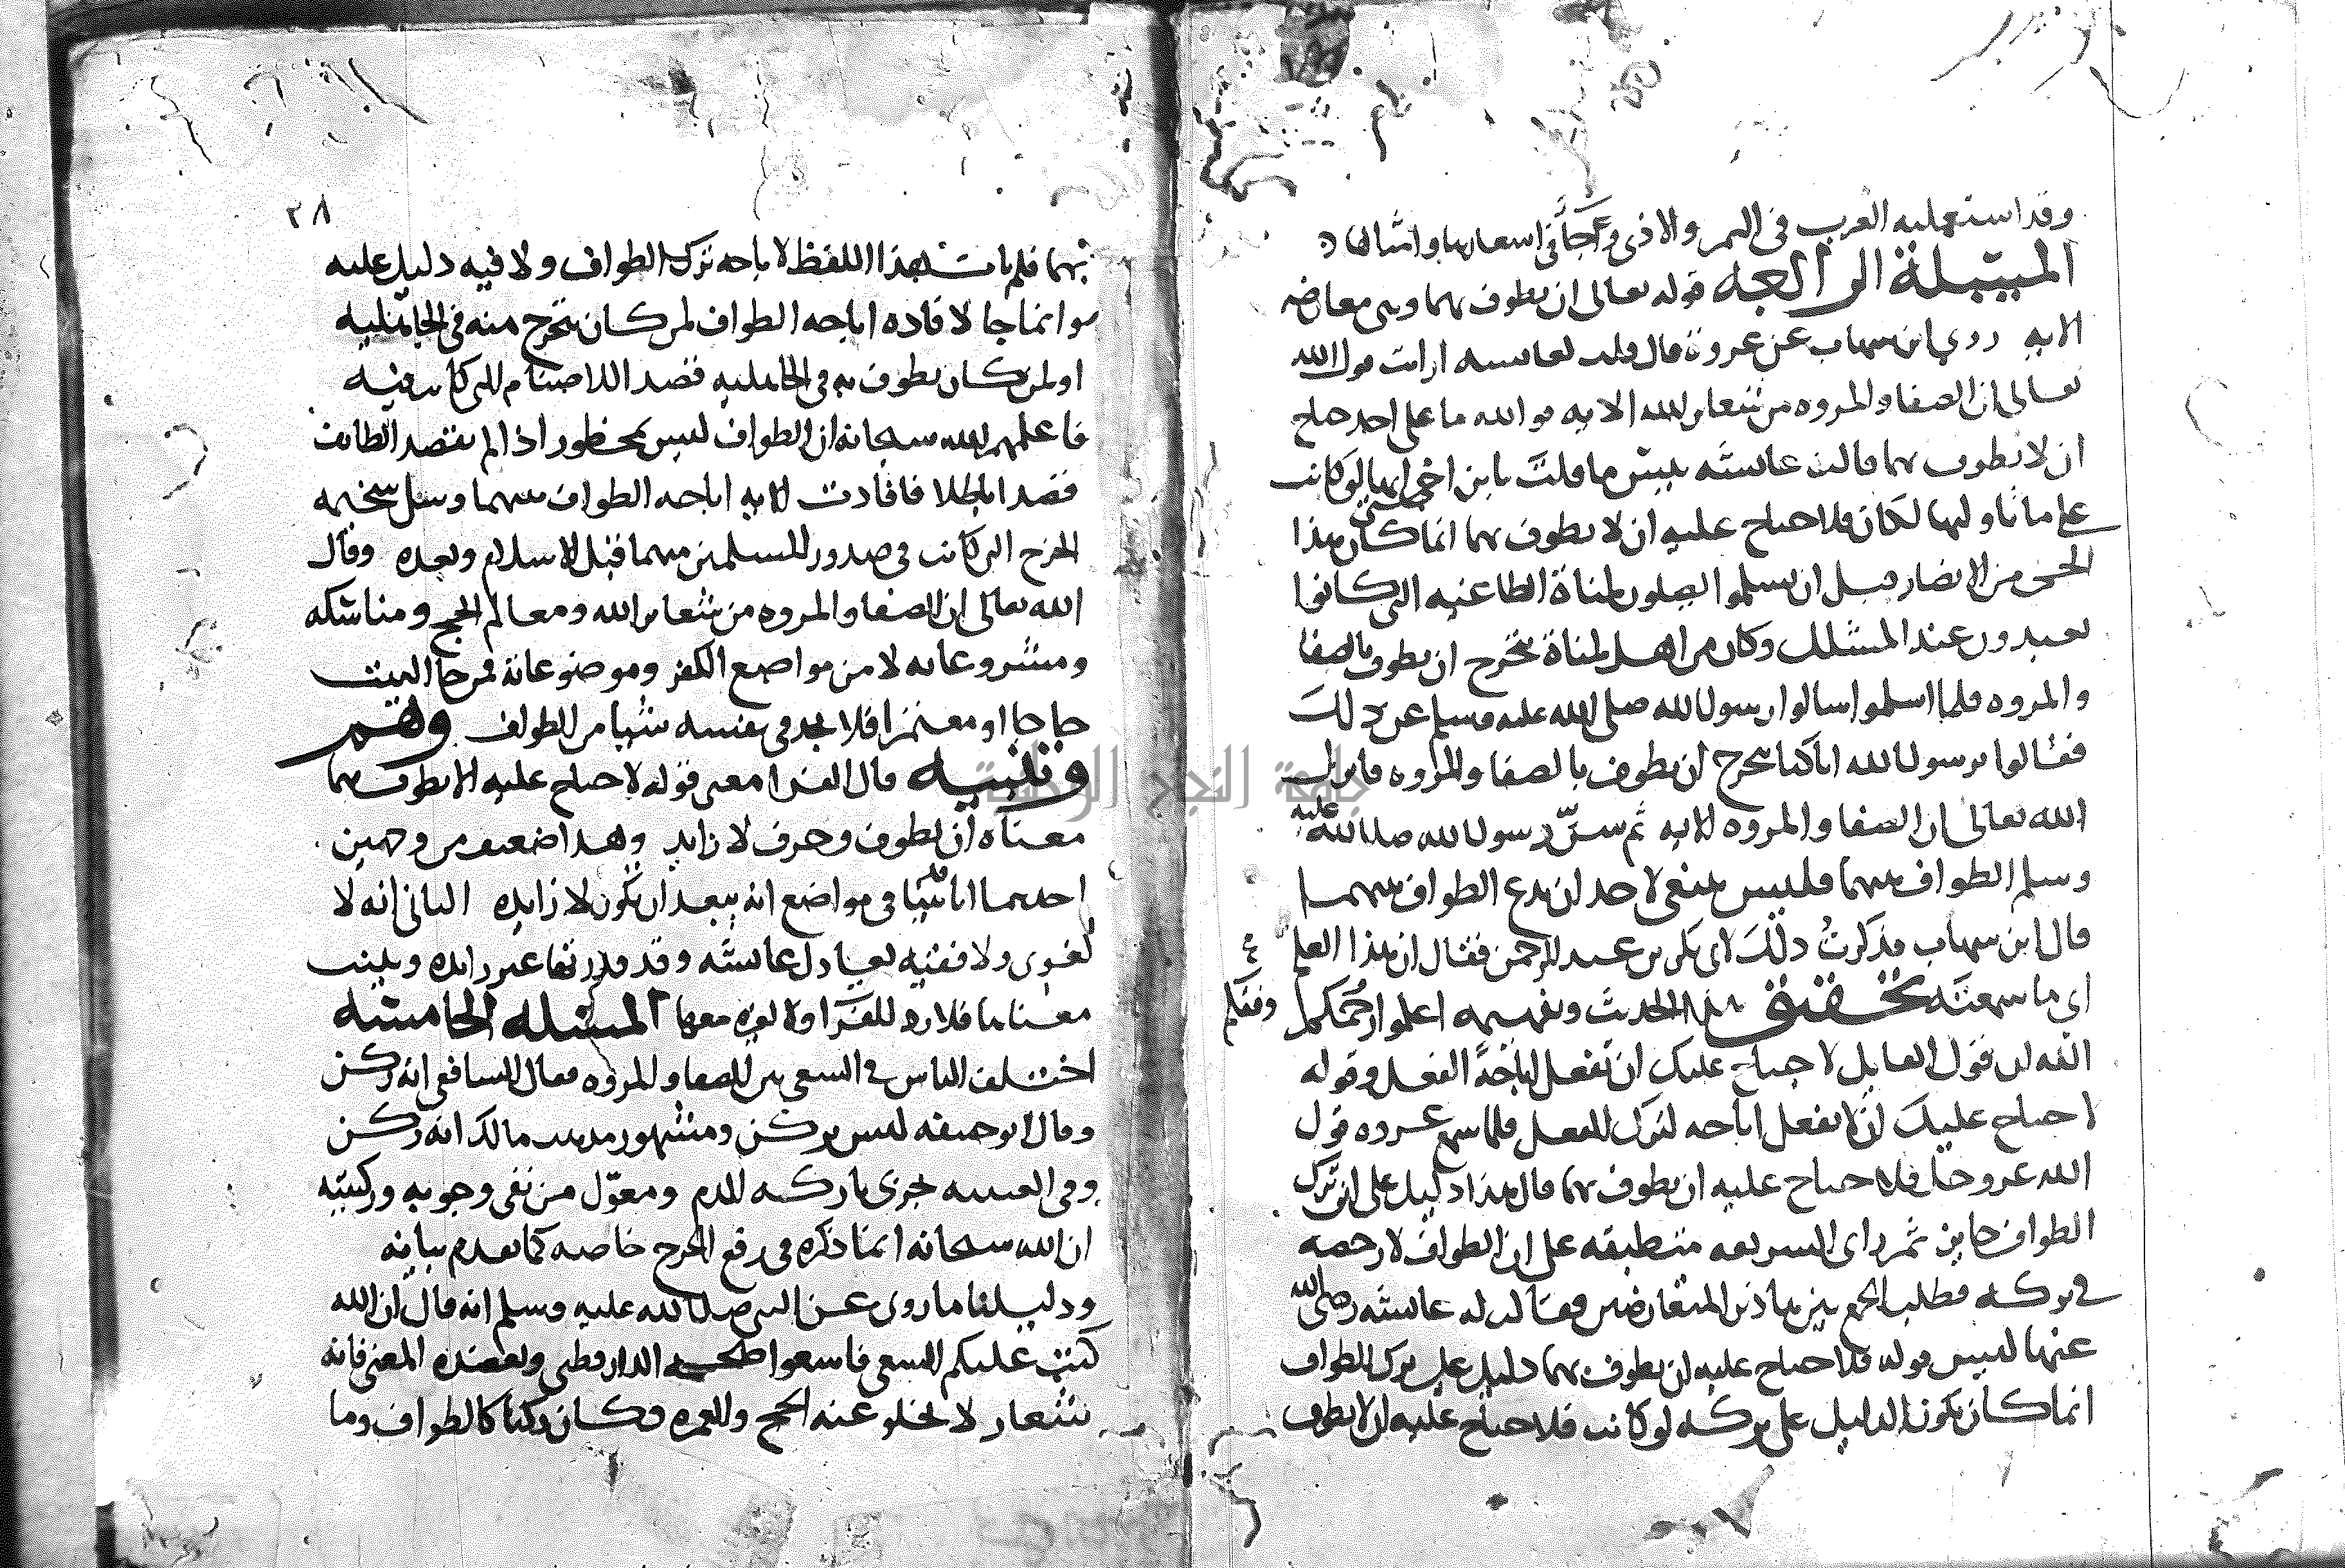 وقد استعملته العرب في السر والاذى وجآ في اسعارها وامثالها
المسئلة الرابعه قوله تعالى ان يطوف بهما وهي معارضه
الايه روي ابن شهاب عن عروة قال قلت لعائشه ارايت قول الله
تعالى ان الصفا والمروه من شعاير الله الايه فوالله ما على احد جناح
ان لا يطوف بهما قالت عائشه بيس ما قلت يا بن اختي انها لو كانت
على ما تاولتها لكان فلا جناح عليه ان لا يطوف بهما انما كان هذا
الحي من الانصار قبل ان يسلموا يهلون لمناة الطاغيه التي كانوا
يعبدون عند المشلل وكان من اهل لمناة يتحرج ان يطوف بالصفا
والمروه فلما اسلموا سالوا رسول الله صلى الله عليه وسلم عن ذلك
فقالوا يرسول الله انا كنا نتحرج ان نطوف بالصفا والمروه فانزل
الله تعالى ان الصفا والمروه الايه ثم سنّ رسول الله صلى الله عليه
وسلم الطواف بينهما فليس ينبغي لاحد ان يدع الطواف بينهما
قال ابن شهاب فذكرتُ ذلك لابي بكر بن عبد الرحمن فقال ان هذا العلم
اي ما سمعت به تحقيق هذا الحديث وتفهيمه اعلموا رحمكم وفقكم
الله ان قول القايل لا جناح عليك ان تفعل اباحةُ الفعل وقوله
لا جناح عليك ان لا تفعل اباحه لترك الفعل فلما سمع عروه قول
الله عز وجل فلا جناح عليه ان يطوف بهما قال هذا دليل على ان ترك
الطواف جايز ثم راى الشريعه منطبقه على ان الطواف لا رخصه
في تركه فطلب الجمع بين هاذين المتعارضين فقالت له عائشه رضي الله
عنها ليس قوله فلا جناح عليه ان يطوف بهما دليل على ترك الطواف
انما كان يكون الدليل على تركه لو كانت فلا جناح عليه ان لا يطوف
٢٨
بهما فلم يات بهذا اللفظ لاباحه ترك الطواف ولا فيه دليل عليه
وانما جا لافاده اباحه الطواف لمن كان يتحرج منه في الجاهليه
او لمن كان يطوف به في الجاهليه قصد اللاصنام التي كانت فيه
فاعلمهم الله سبحانه ان الطواف ليس بمحظور اذا لم يقصد الطائف
قصدا باطلا فافادت الايه اباحه الطواف بينهما وسل سخيمه
الحرج التي كانت في صدور المسلمين منهما قبل الاسلام وبعده وقال
الله تعالى ان الصفا والمروه من شعاير الله ومعالم الحج ومناسكه
ومشروعاته لا من مواضع الكفر وموضوعاته فمن جا البيت
حاجا او معتمرا فلا يجد في نفسه شيا من الطواف وهم
وتنبيه قال الفرا معنى قوله لا جناح عليه الا يطوف بهما
معناه ان يطوف وحرف لا زايد وهذا ضعيف من وجهين
احدهما انا بينا في مواضع انه يبعد ان تكون لا زايده الثاني انه لا
لغوي ولا فقيه يعادل عائشه وقد قررتها غير زايده وبينت
معناها فلا راي للفرّا ولا لغيره معها المسئله الخامسه
اختلف الناس في السعي بين الصفا والمروه فقال الشافعي انه ركن
وقال ابو حنيفه ليس بركن ومشهور مذهب مالك انه ركن
وفي العتبيه يجزي تاركه الدم ومعوّل من نفى وجوبه وركنيته
ان الله سبحانه انما ذكره في رفع الحرج خاصه كما تقدم بيانه
ودليلنا ما روى عن النبي صلى الله عليه وسلم انه قال ان الله
كتب عليكم السعي فاسعوا صححه الدارقطني ويعضده المعنى فانه
شعار لا يخلو عنه الحج والعمره فكان ركنا كالطواف وما
جامعة النجاح الوطنية